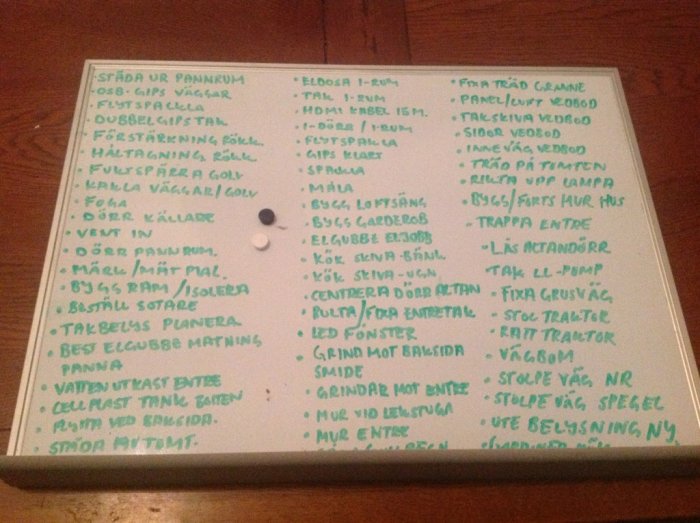 • STÄDA UR PANNRUM
• OSB-GIPS VÄGGAR
• FLYTSPACKLA
• DUBBELGIPS TAK
• FÖRSTÄRKNING RÖKK.
• HÅLTAGNING RÖKK.
• FUKTSPÄRRA GOLV
• KAKLA VÄGGAR/GOLV
• FOGA
• DÖRR KÄLLARE
• VENT IN
• DÖRR PANNRUM.
• MÄRK/MÄT
• BYGG RAM/ISOLERA
• BESTÄLL SOTARE
• TAKBELYS PLANERA
• BEST ELGUBBE MATNING
PANNA
• VATTEN UTKAST ENTRE
• CELLPLAST TANK BOTTEN
• FLYTTA VED BAKSIDA.
• STÄDA AV TOMT.
• ELDOSA I-RUM
• TAK I-RUM
• HDMI KABEL 15M.
• I-DÖRR/I-RUM
• FLYTSPACKLA
• GIPS KLART
• SPACKLA
• MÅLA
• BYGG LOFTSÄNG
• BYGG GARDEROB
• ELGUBBE ELJOBB
• KÖK SKIVA-BÄNK
• KÖK SKIVA-UGN.
• CENTRERA DÖRR ALTAN
• BULTA/FIXA ENTRETAK
• LED FÖNSTER
• GRIND MOT BAKSIDA
SMIDE
• GRINDAR MOT ENTRE
• MUR VID LEKSTUGA
• MUR ENTRE
• FIXA TRÄD GRANNE
• PANEL/LUFT VEDBOD
• TAKSKIVA VEDBOD
• SIDOR VEDBOD
• INNEVÄG VEDBOD
• TRÄD PÅ TOMTEN
• RIKTA UPP LAMPA
• BYGG/FORTS MUR HUS
• TRAPPA ENTRE
• LÅS ALTANDÖRR
• TAK LL-PUMP
• FIXA GRUSVÄG
• STOL TRAKTOR
• RATT TRAKTOR
• VÄGBOM
• STOLPE VÄG NR
• STOLPE VÄG SPEGEL
• UTE BELYSNING NY